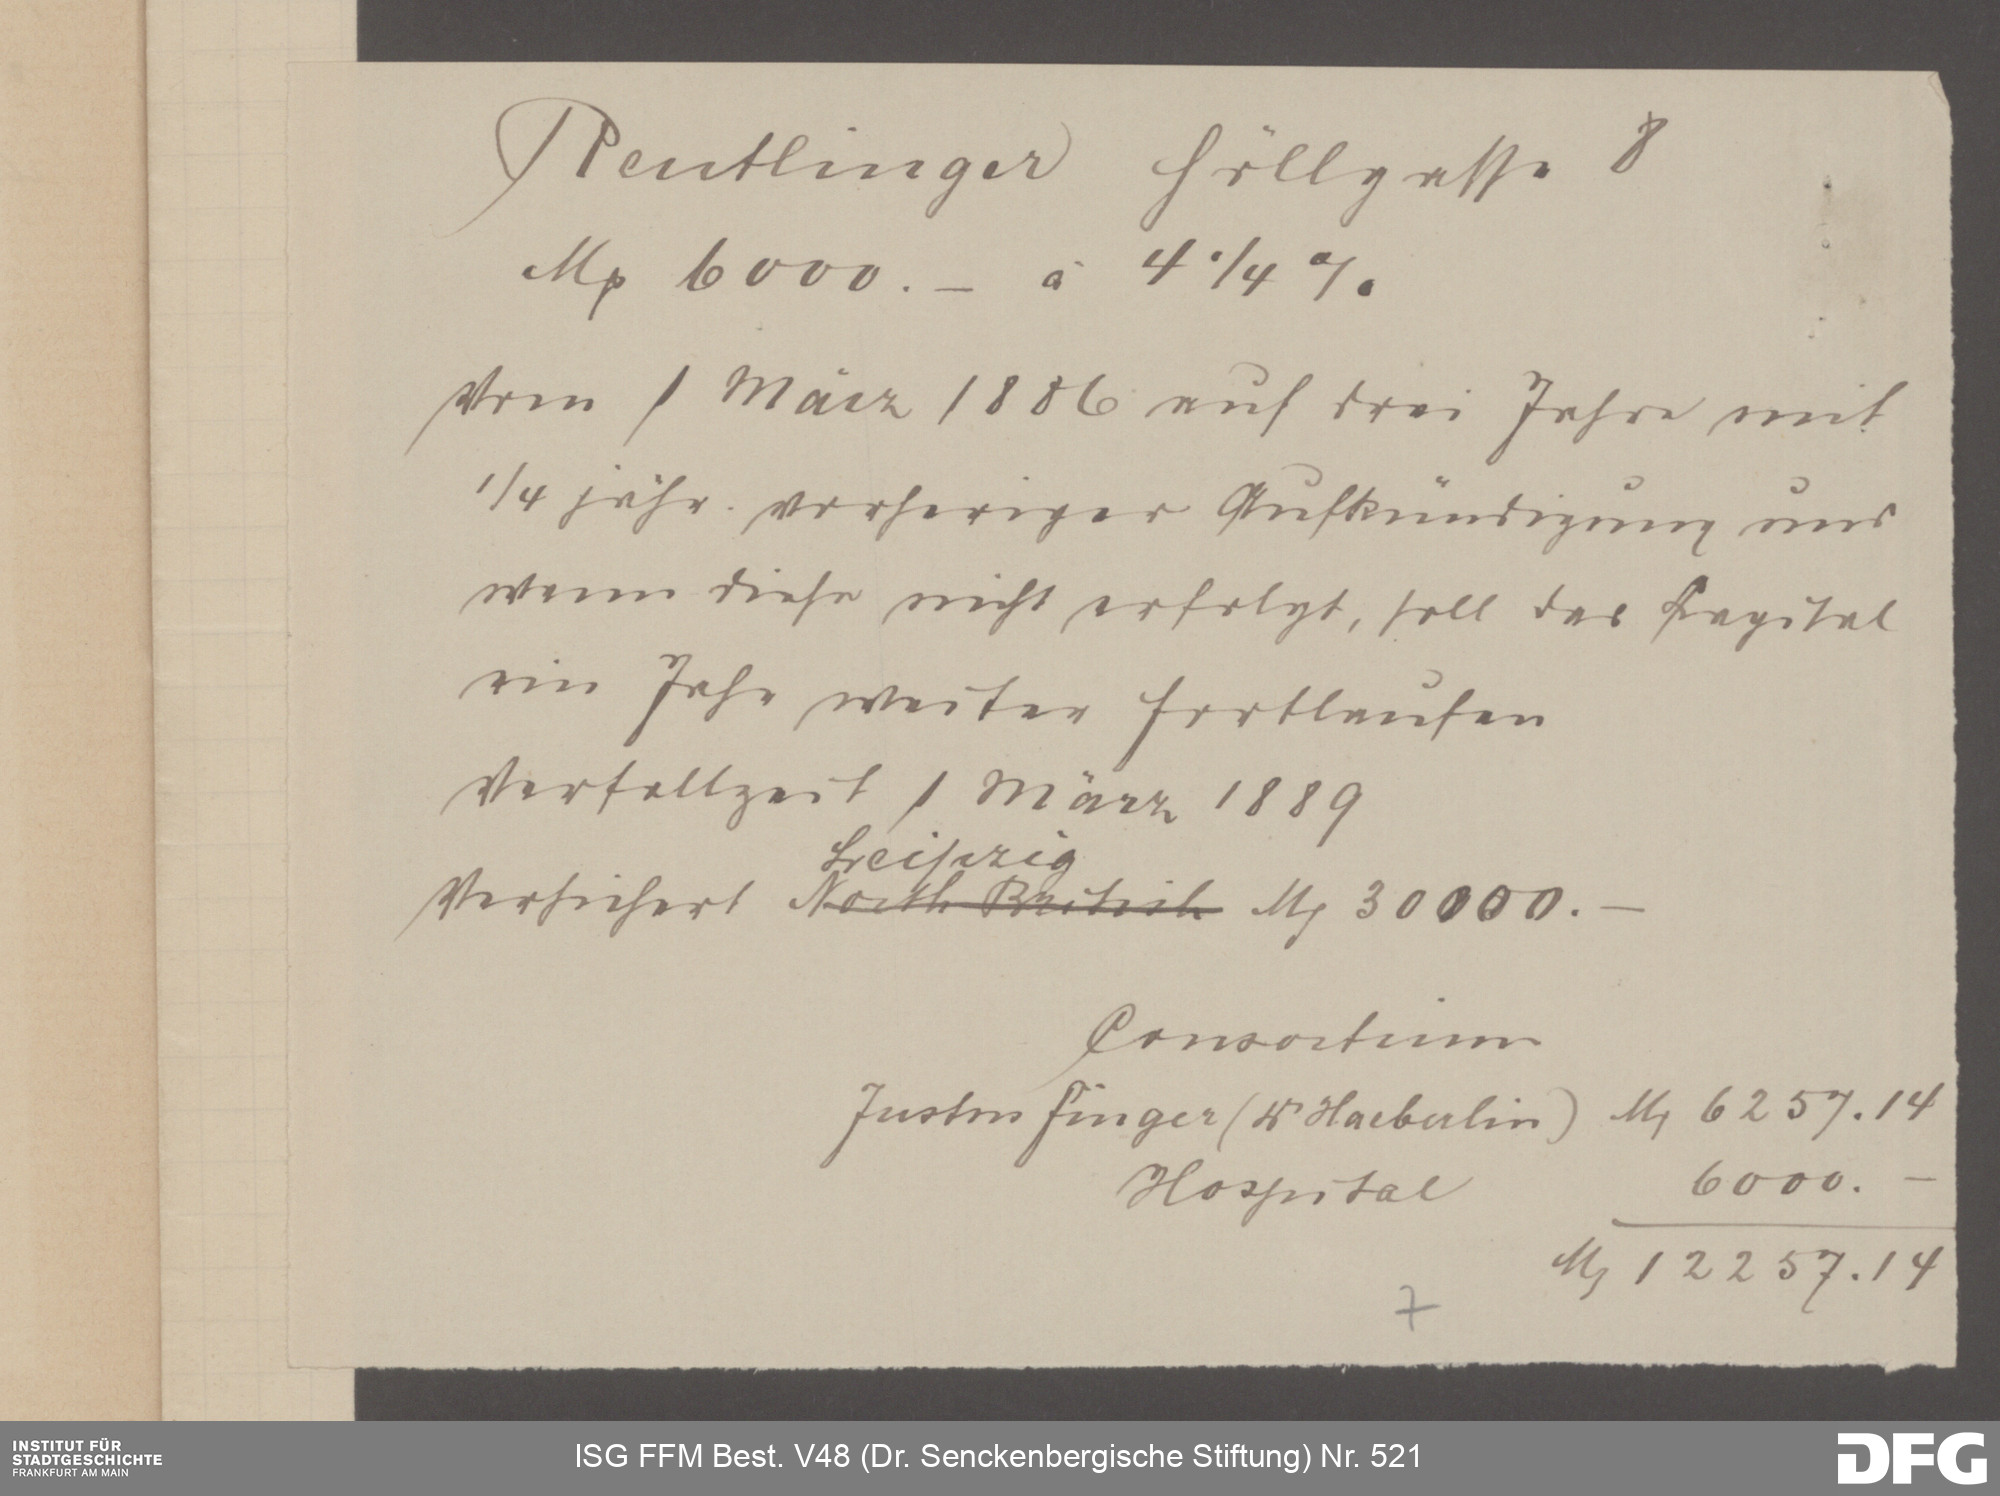 Reutlinger Höllgasse 8
Mk 6000.— à 4 1/4 %
Vom 1 März 1886 auf drei Jahre mit
1/4 jähr. vorheriger Aufkündigung und
wenn diese nicht erfolgt, soll das Kapital
ein Jahr weiter fortlaufen
Verfallzeit 1 März 1889
Leipzig
Versichert North British Mk 30000.—
Consortium
Justin Finger (Dr Haeberlin) Mk 6257.14
Hospital 6000.—
Mk 12257.14
7
INSTITUT FÜR
STADTGESCHICHTE
FRANKFURT AM MAIN
ISG FFM Best. V48 (Dr. Senckenbergische Stiftung) Nr. 521
DFG